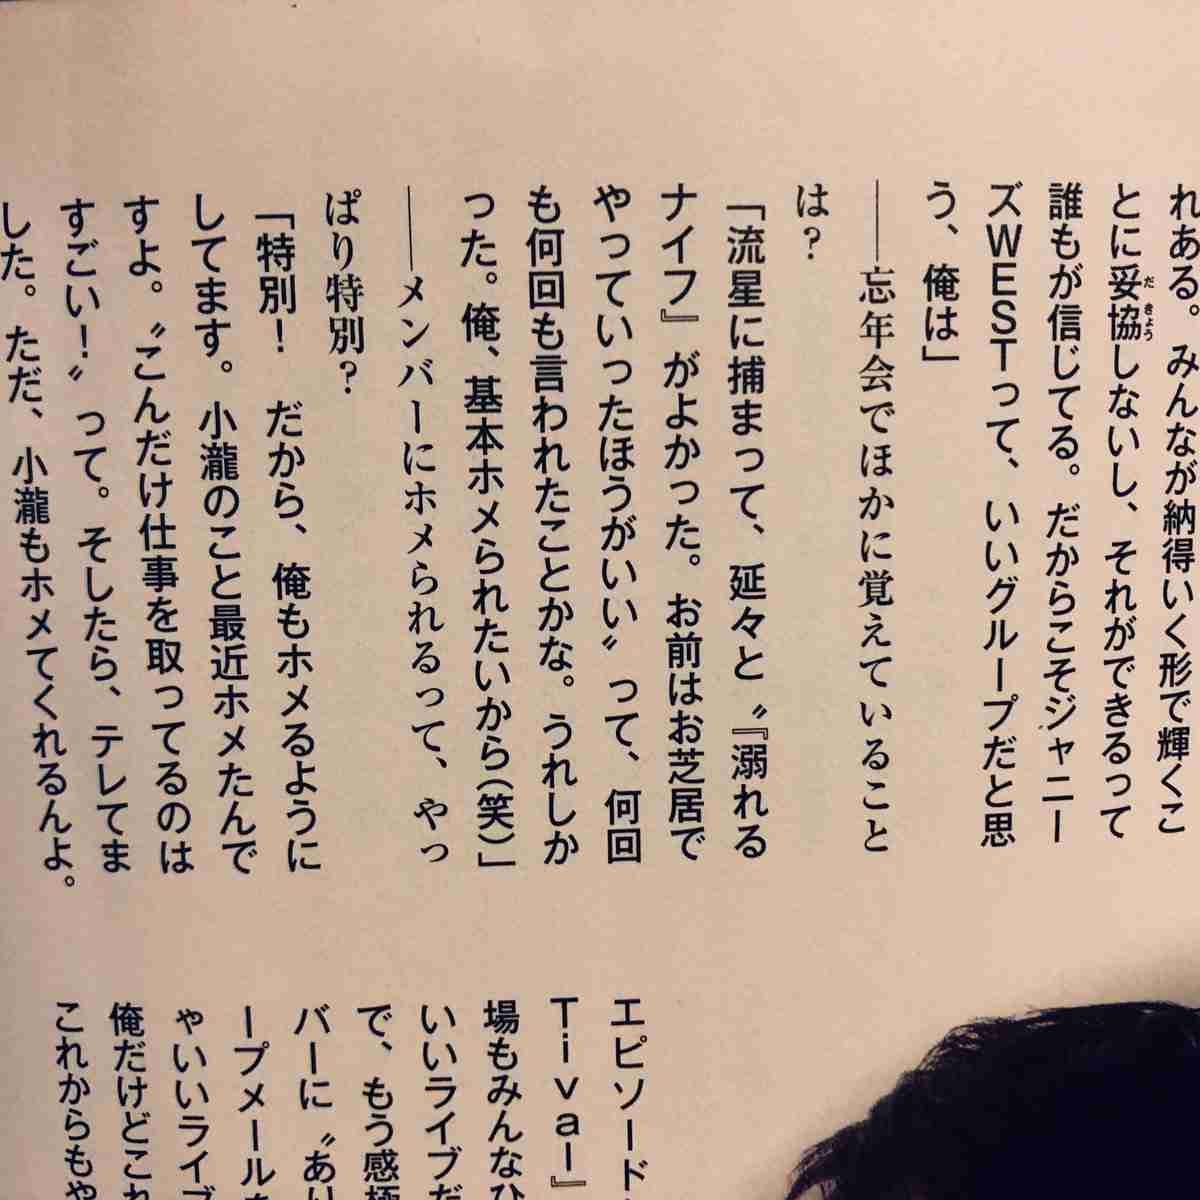 れある。みんなが納得いく形で輝くこ
とに妥協しないし、それができるって
だ きょう
誰もが信じてる。だからこそジャニー
ズWESTって、いいグループだと思
う、俺は」
――忘年会でほかに覚えていること
は？
「流星に捕まって、延々と〝『溺れる
ナイフ』がよかった。お前はお芝居で
やっていったほうがいい〟って、何回
も何回も言われたことかな。うれしか
った。俺、基本ホメられたいから(笑)」
――メンバーにホメられるって、やっ
ぱり特別？
「特別！　だから、俺もホメるように
してます。小瀧のこと最近ホメたんで
すよ。〝こんだけ仕事を取ってるのは
すごい！〟って。そしたら、テレてま
した。ただ、小瀧もホメてくれるんよ。
エピソード
Tival』
場もみんなひ
いいライブだ
で、もう感極
バーに〝あり
ープメールを
ゃいいライブ
俺だけどこれ
これからもや